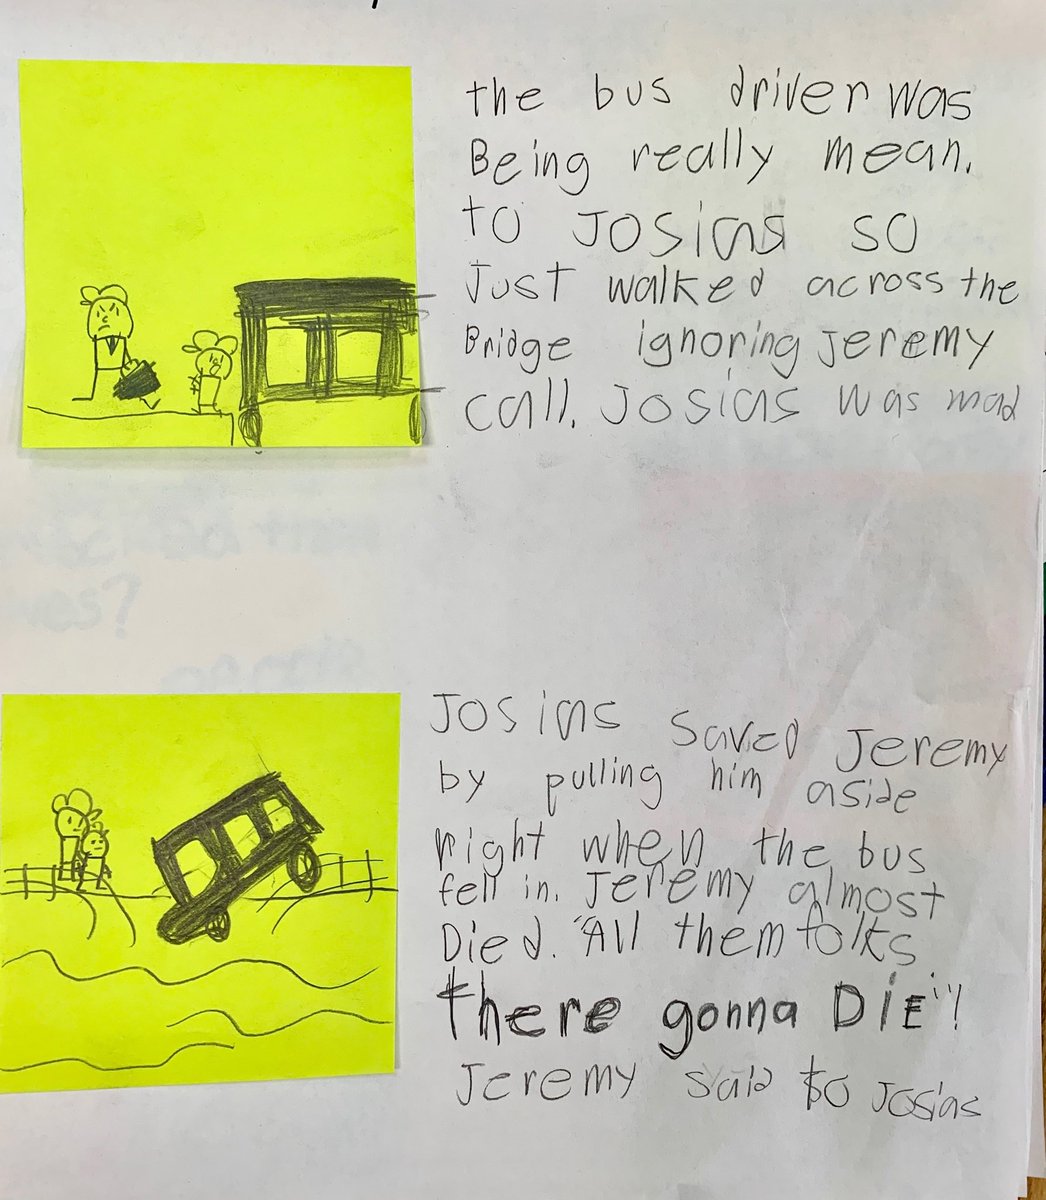 the bus driver was
Being really mean.
to Josias so
Just walked across the
Bridge ignoring Jeremy
call. Josias was mad
Josias saved Jeremy
by pulling him aside
right when the bus
fell in. Jeremy almost
Died. "All them folks
there gonna DiE"!
Jeremy said to Josias